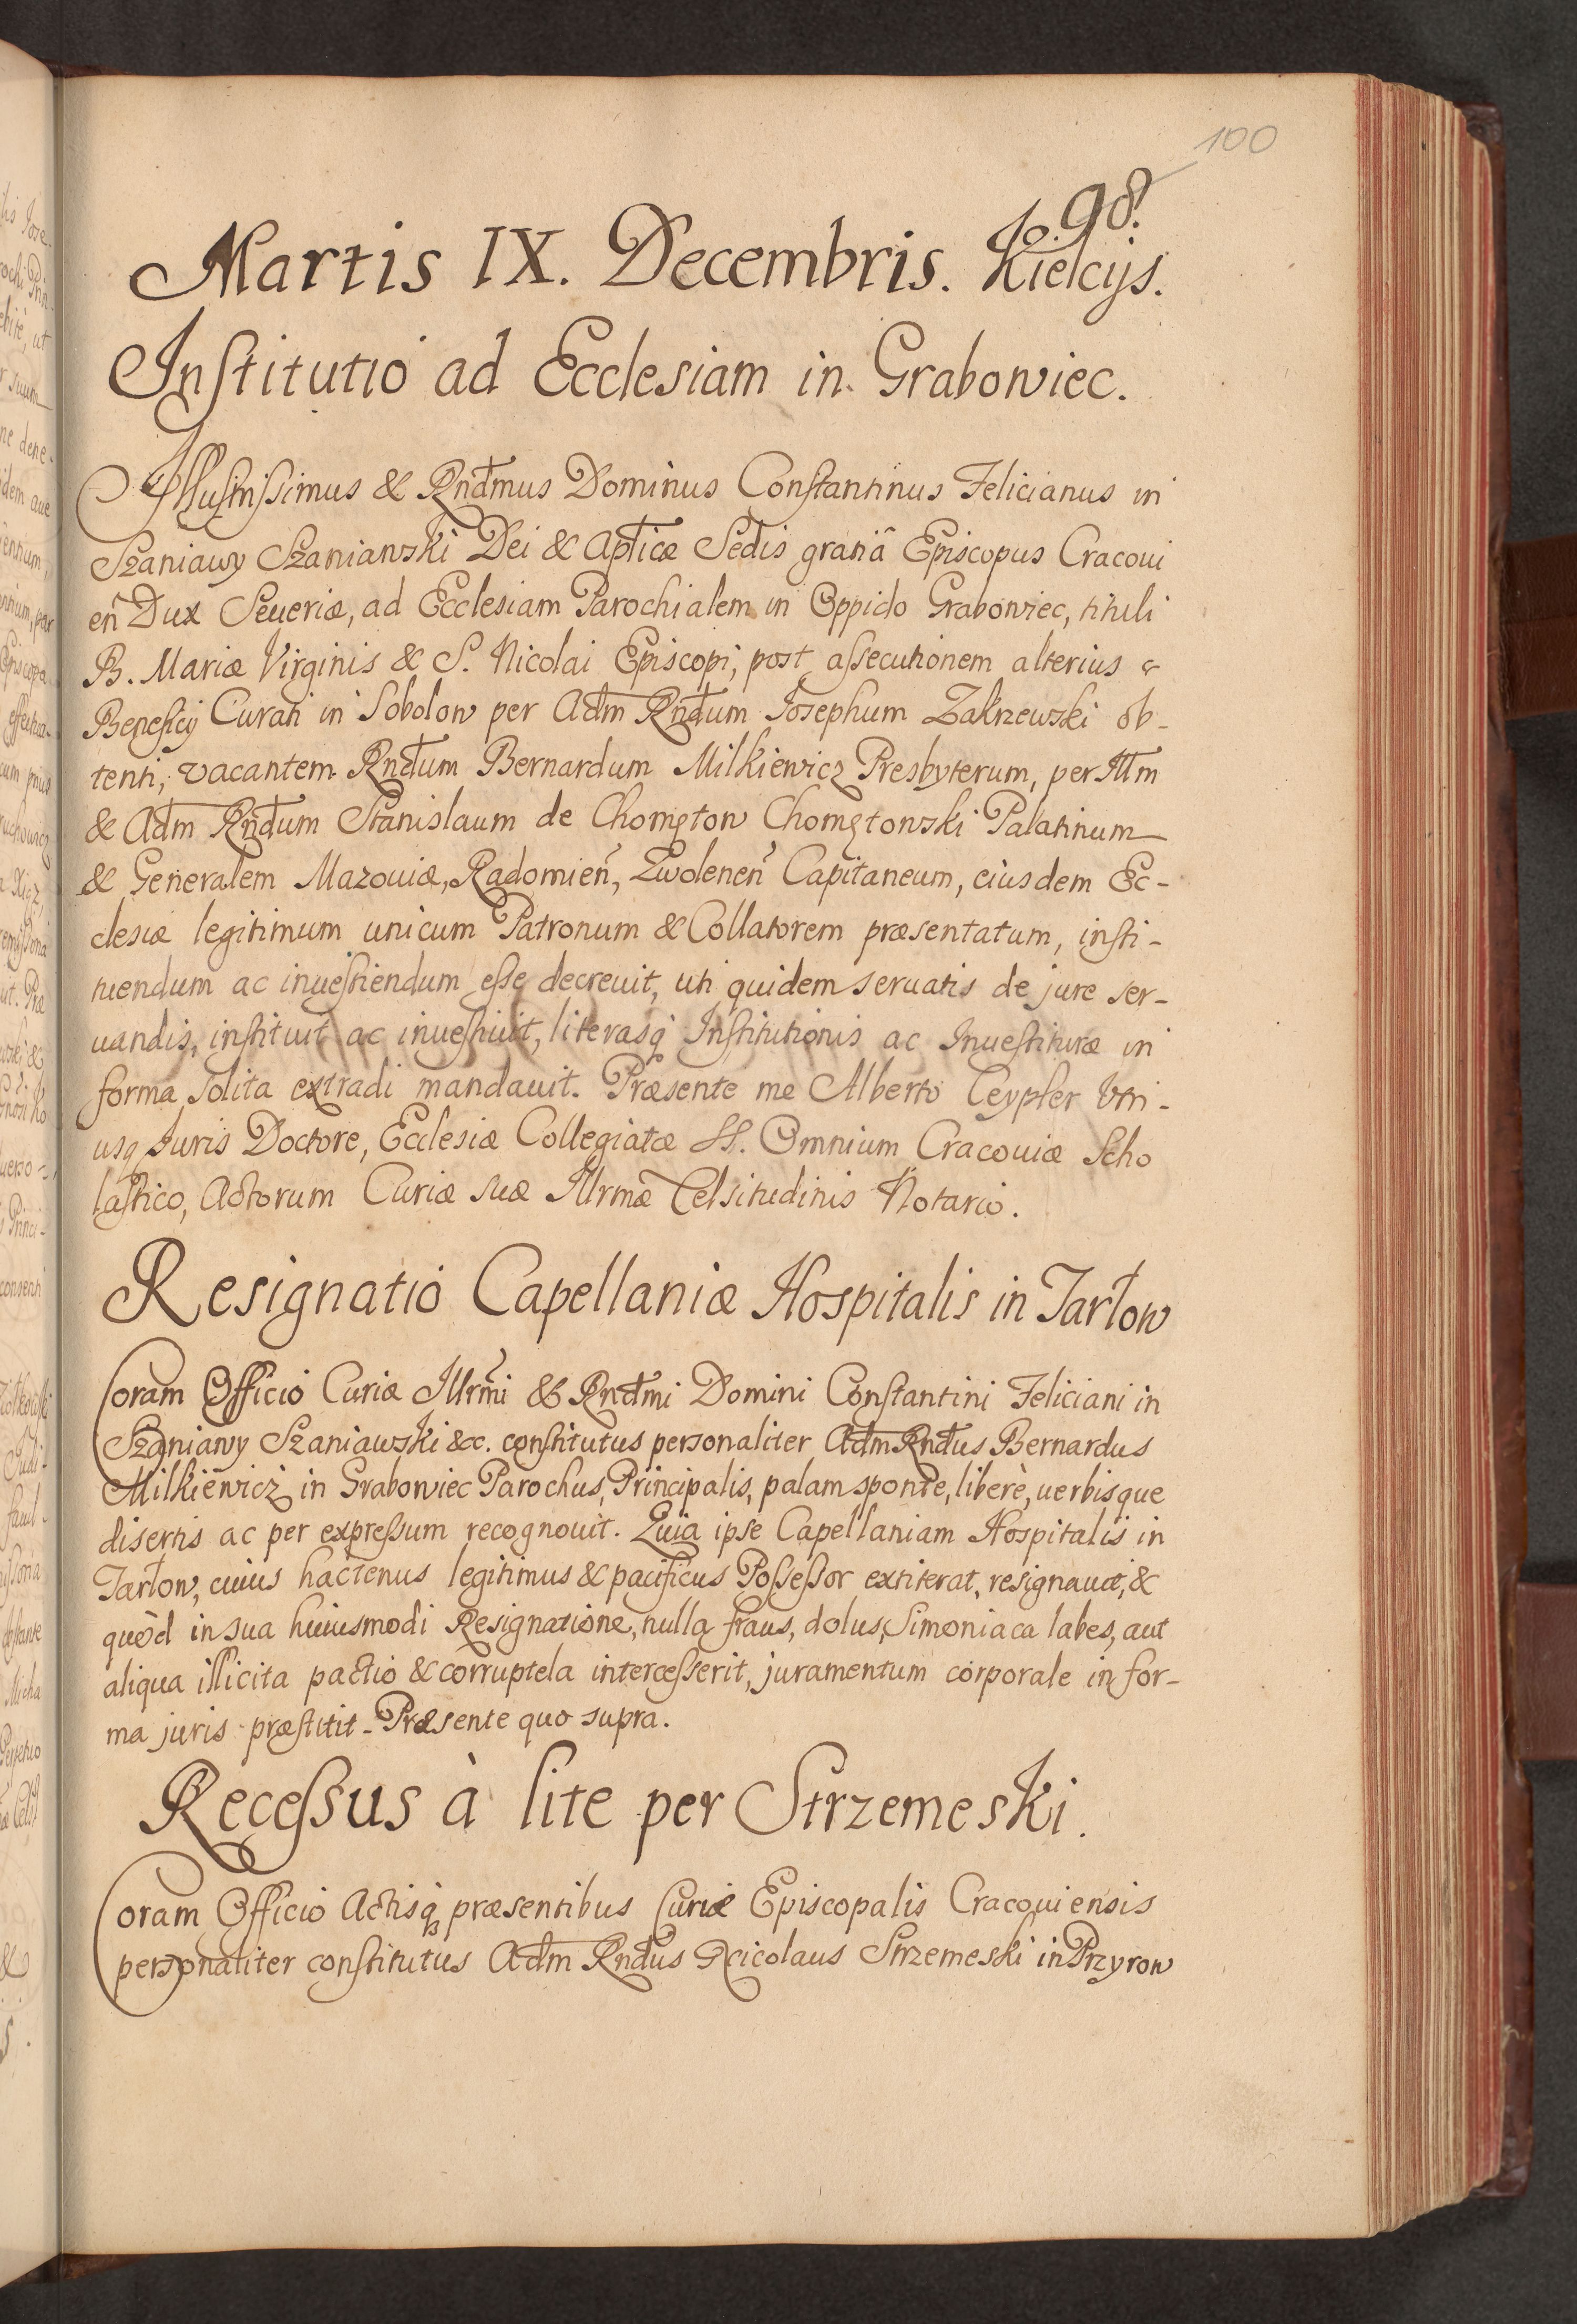 100
fo. 98.
Martis IX. Decembris. Kielcijs.
Institutio ad Ecclesiam in Grabowiec.
Illustrissimus & Rndmus Dominus Constantinus Felicianus in
Szaniawy Szaniawski Dei & Aplicæ Sedis gratiâ Episcopus Cracoui
en Dux Seueriæ, ad Ecclesiam Parochialem in Oppido Grabowiec, tituli
B. Mariæ Virginis & S. Nicolai Episcopi, post assecutionem alterius
Beneficij Curati in Sobolow per Adm Rndum Josephum Zakrzewski ob-
tenti, vacantem Rndum Bernardum Milkiewicz Presbyterum, per Illm
& Adm Rndum Stanislaum de Chomęton Chomętowski Palatinum
& Generalem Mazouiæ, Radomien, Zwolenen Capitaneum, eiusdem Ec-
clesiæ legitimum unicum Patronum & Collatorem præsentatum, insti-
tuendum ac inuestiendum esse decreuit, uti quidem seruatis de jure ser-
uandis, instituit ac inuestiuit, literasq Institutionis ac Inuestituræ in
forma solita extradi mandauit. Præsente me Alberto Ceypler Vtri-
usq Juris Doctore, Ecclesiæ Collegiatæ SS. Omnium Cracouiæ Scho
lastico, Actorum Curiæ suæ Illrmæ Celsitudinis Notario.
Resignatio Capellaniæ Hospitalis in Tarłow
Coram Officio Curiæ Illrmi & Rndmi Domini Constantini Feliciani in
Szaniawy Szaniawski &c. constitutus personaliter Adm Rndus Bernardus
Milkiewicz in Grabowiec Parochus, Principalis, palam sponte, liberè, uerbisque
disertis ac per expressum recognouit. Quia ipse Capellaniam Hospitalis in
Tarłow, cuius hactenus legitimus & pacificus Possessor extiterat, resignauit, &
quòd in sua huiusmodi Resignatione, nulla fraus, dolus, Simoniaca labes, aut
aliqua illicita pactio & corruptela intercesserit, juramentum corporale in for-
ma juris præstitit. Præsente quo supra.
Recessus à lite per Strzemeski.
Coram Officio Actisq præsentibus Curiæ Episcopalis Cracouiensis
personaliter constitutus Adm Rndus Nicolaus Strzemeski in Przyrow